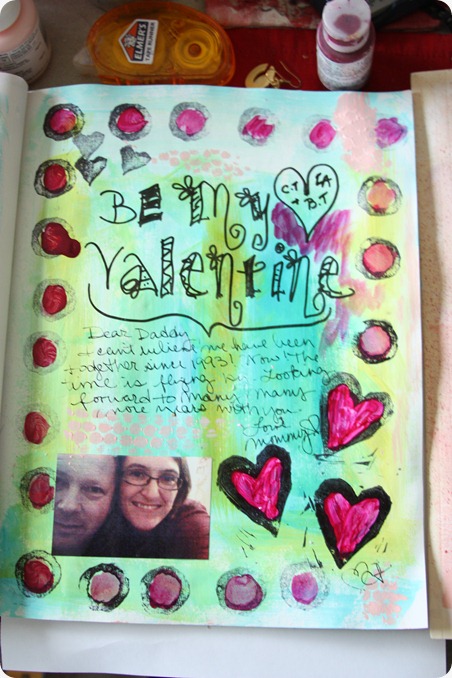 ELMER'S
BE My
C.T EA
+ B.T
Valentine
Dear Daddy
I can't believe we have been
together since 1993! Wow! The
time is flying by. Looking
forward to many many
more years with you.
Love
Mommy